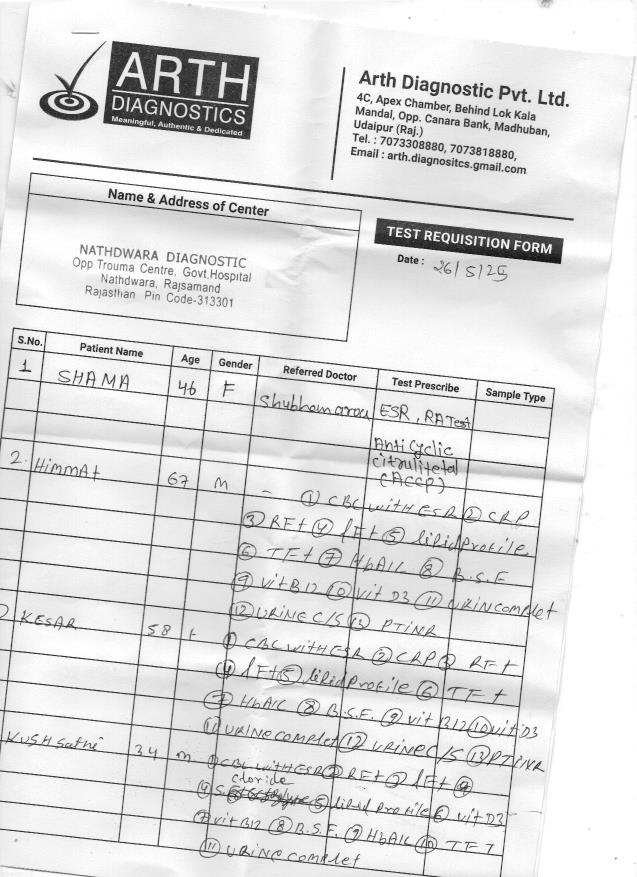 ARTH
DIAGNOSTICS
Meaningful, Authentic & Dedicated
Arth Diagnostic Pvt. Ltd.
4C, Apex Chamber, Behind Lok Kala
Mandal, Opp. Canara Bank, Madhuban,
Udaipur (Raj.)
Tel. : 7073308880, 7073818880,
Email : arth.diagnositcs.gmail.com
Name & Address of Center
NATHDWARA DIAGNOSTIC
Opp Trouma Centre, Govt Hospital
Nathdwara, Rajsamand
Rajasthan Pin Code-313301
TEST REQUISITION FORM
Date : 26/5/25
S.No. Patient Name Age Gender Referred Doctor Test Prescribe Sample Type
1 SHAMA 46 F ESR, RA Test
Anti cyclic
(ACCP)
2. Himmat 67 M - ① CBC with ESR ② CRP
③ RFt ④ lFt ⑤ lipid profile
⑥ TFt ⑦ HbA1C ⑧ B.S.F
⑨ vit B12 ⑩ vit D3 ⑪ URIN complet
⑫ URINE C/S ⑬ PTINR
KESAR 58 F ① CBC with ESR ② CRP ③ RFt
④ lFt ⑤ lipid profile ⑥ TFt
⑦ HbA1C ⑧ B.S.F. ⑨ vit B12 ⑩ vit D3
⑪ URINE complet ⑫ URINE C/S ⑬ PTINR
KUSH 34 M ① CBC with ESR ② RFt ③ lFt ④
cloride
⑤ lipid profile ⑥ vit D3
⑦ vit B12 ⑧ B.S.F. ⑨ HbA1C ⑩ TFT
⑪ URINE complet